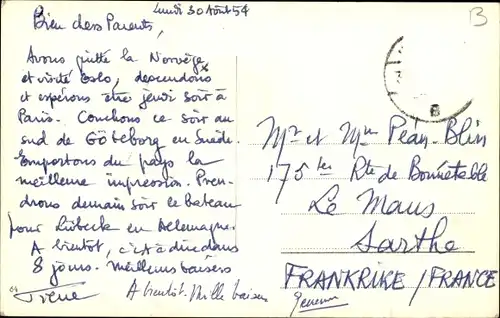 Lundi 30 Août 54
B
Bien chers Parents,
Avons quitté la Norvège
et visité Oslo, descendons
et espérons être jeudi soir à
Paris. Couchons ce soir au
sud de Göteborg en Suède.
Emportons du pays la
meilleure impression. Pren-
drons demain soir le bateau
pour Lübeck en Allemagne.
A bientôt, c'est à dire dans
8 jours. Meilleurs baisers
Irène
A bientôt. Mille baisers
B
Mr et Mme Péan-Blin
175 ter Rte de Bonnétable
Le Mans
Sarthe
FRANKRIKE / FRANCE